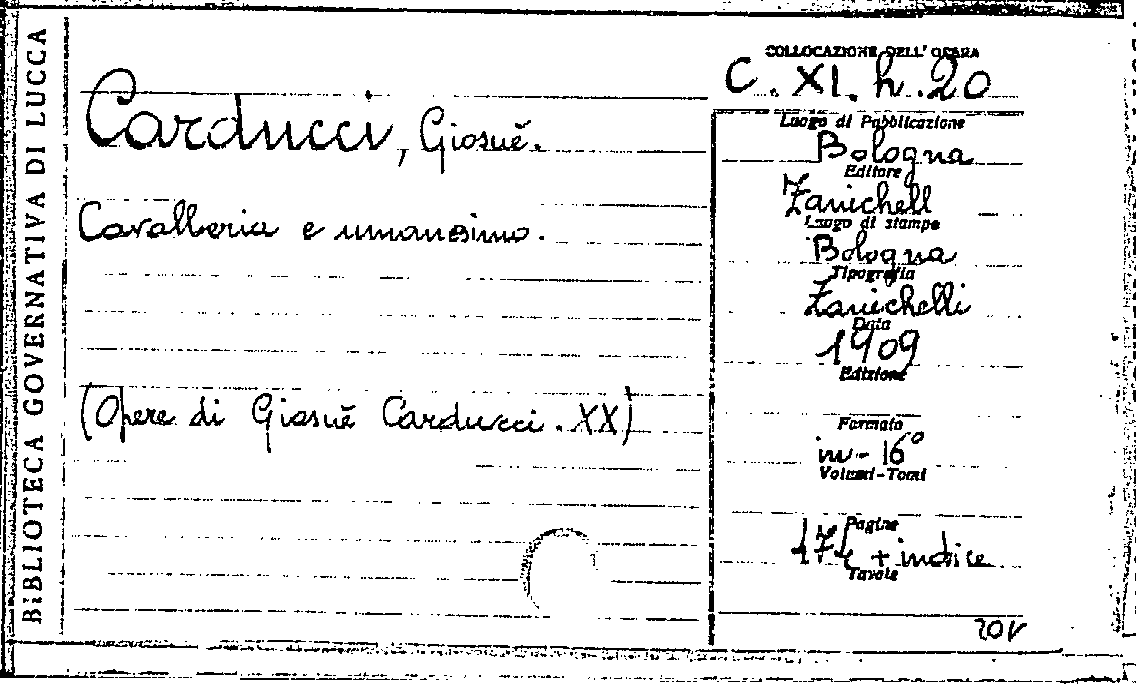 BIBLIOTECA GOVERNATIVA DI LUCCA
Carducci, Giosuè.
Cavalleria e umanesimo.
(Opere di Giosuè Carducci. XX)
COLLOCAZIONE DELL'OPERA
C. XI. h. 20
Luogo di Pubblicazione
Bologna
Editore
Zanichell
Luogo di stampa
Bologna
Tipografia
Zanichelli
Data
1909
Edizione
Formato
in-16°
Volumi-Tomi
Pagine
+ indice
Tavole